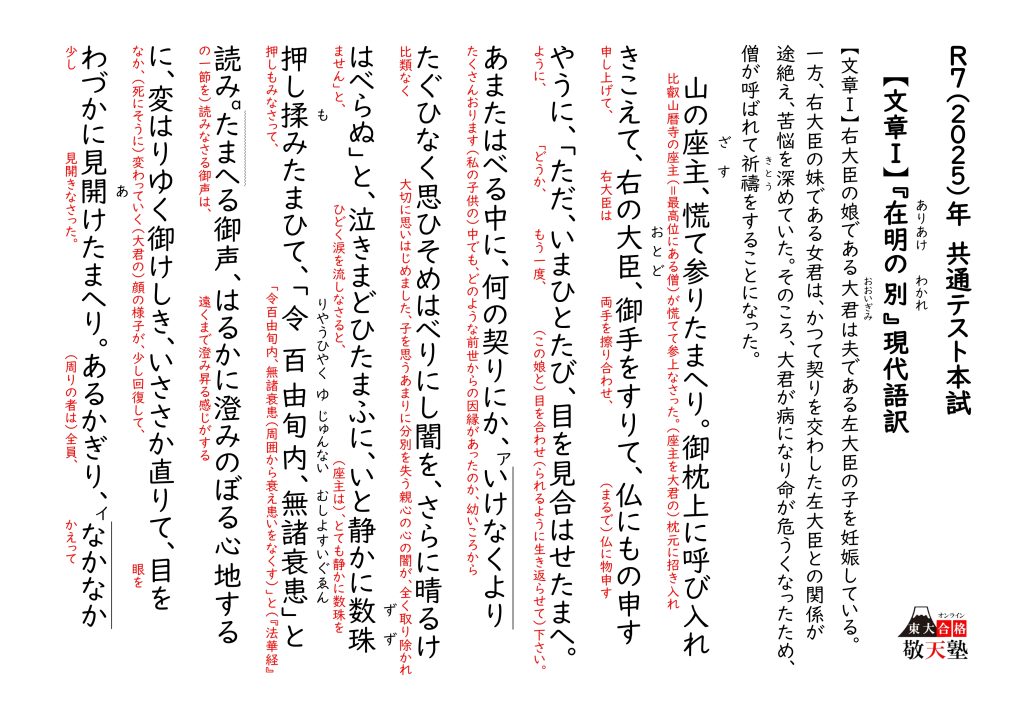 R7(2025)年 共通テスト本試
【文章Ⅰ】『在明の別』現代語訳
ありあけ わかれ
【文章Ⅰ】右大臣の娘である大君は夫である左大臣の子を妊娠している。
おおいぎみ
一方、右大臣の妹である女君は、かつて契りを交わした左大臣との関係が
途絶え、苦悩を深めていた。そのころ、大君が病になり命が危うくなったため、
僧が呼ばれて祈禱をすることになった。
きとう
山の座主、慌て参りたまへり。御枕上に呼び入れ
ざす
比叡山暦寺の座主(=最高位にある僧)が慌てて参上なさった。(座主を大君の)枕元に招き入れ
きこえて、右の大臣、御手をすりて、仏にもの申す
おとど
申し上げて、 右大臣は 両手を擦り合わせ、 (まるで)仏に物申す
やうに、「ただ、いまひとたび、目を見合はせたまへ。
ように、 「どうか、 もう一度、 (この娘と)目を合わせ(られるように生き返らせて)下さい。
あまたはべる中に、何の契りにか、ァいけなくより
たくさんおります(私の子供の)中でも、どのような前世からの因縁があったのか、幼いころから
たぐひなく思ひそめはべりにし闇を、さらに晴るけ
比類なく 大切に思いはじめました、子を思うあまりに分別を失う親心の心の闇が、全く取り除かれ
はべらぬ」と、泣きまどひたまふに、いと静かに数珠
ずず
ません」と、 ひどく涙を流しなさると、 (座主は)、とても静かに数珠を
押し揉みたまひて、「令百由旬内、無諸衰患」と
も りやうひやくゆじゅんない むしよすいぐゑん
押しもみなさって、 「令百由旬内、無諸衰患(周囲から衰え患いをなくす)」と(『法華経』
読みaたまへる御声、はるかに澄みのぼる心地する
の一節を)読みなさる御声は、 遠くまで澄み昇る感じがする
に、変はりゆく御けしき、いささか直りて、目を
なか、(死にそうに)変わっていく(大君の)顔の様子が、少し回復して、 眼を
わづかに見開けたまへり。あるかぎり、ィなかなか
あ
少し 見開きなさった。 (周りの者は)全員、 かえって
オンライン
東大合格
敬天塾